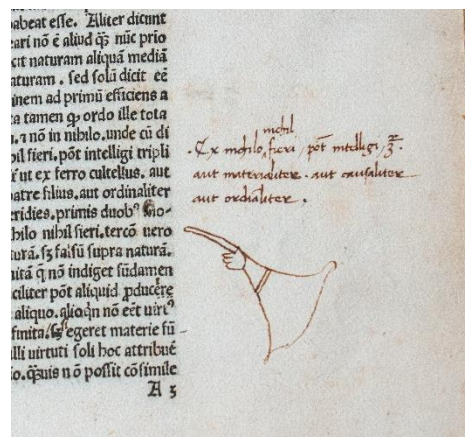 abeat esse. Aliter dicunt
eari nõ ē aliud q̃ꝫ nūc prio
cit naturam aliquã mediã
aturam. sed solū dicit eē
inem ad primū efficiens a
ta tamen ꝙ ordo ille tota
. ⁊ nõ in nihilo. unde cū di
hil fieri. põt intelligi tripli
f ut ex ferro cultellus. aut
atre filius. aut ordinaliter
eridies. primis duobꝰ mo-
hilo nihil fieri. tercõ uero
turã. sꝫ falsū supra naturã.
nitã q̃ nõ indiget fūdamen
ciliter põt aliquid ꝓducere
aliquo. alioqñ nõ eēt uirtꝰ
finita. egeret materie fū
lli uirtuti soli hoc attribuē
o. q̃uis nõ possit cõsimile
A 3
nichil
Ex nichilo fieri / põt intelligi /
aut materialiter. aut causaliter
aut ordiãliter.